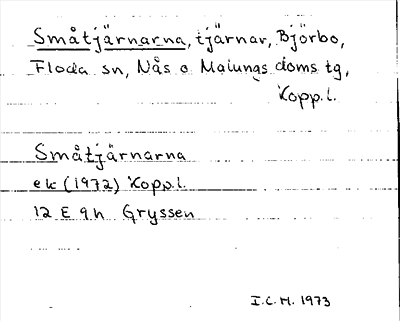 Småtjärnarna, tjärnar, Björbo,
Floda sn, Nås o Malungs doms tg,
Kopp.l.
Småtjärnarna
ek (1972) Kopp.l.
12 E 9h Gryssen
I.C.M. 1973